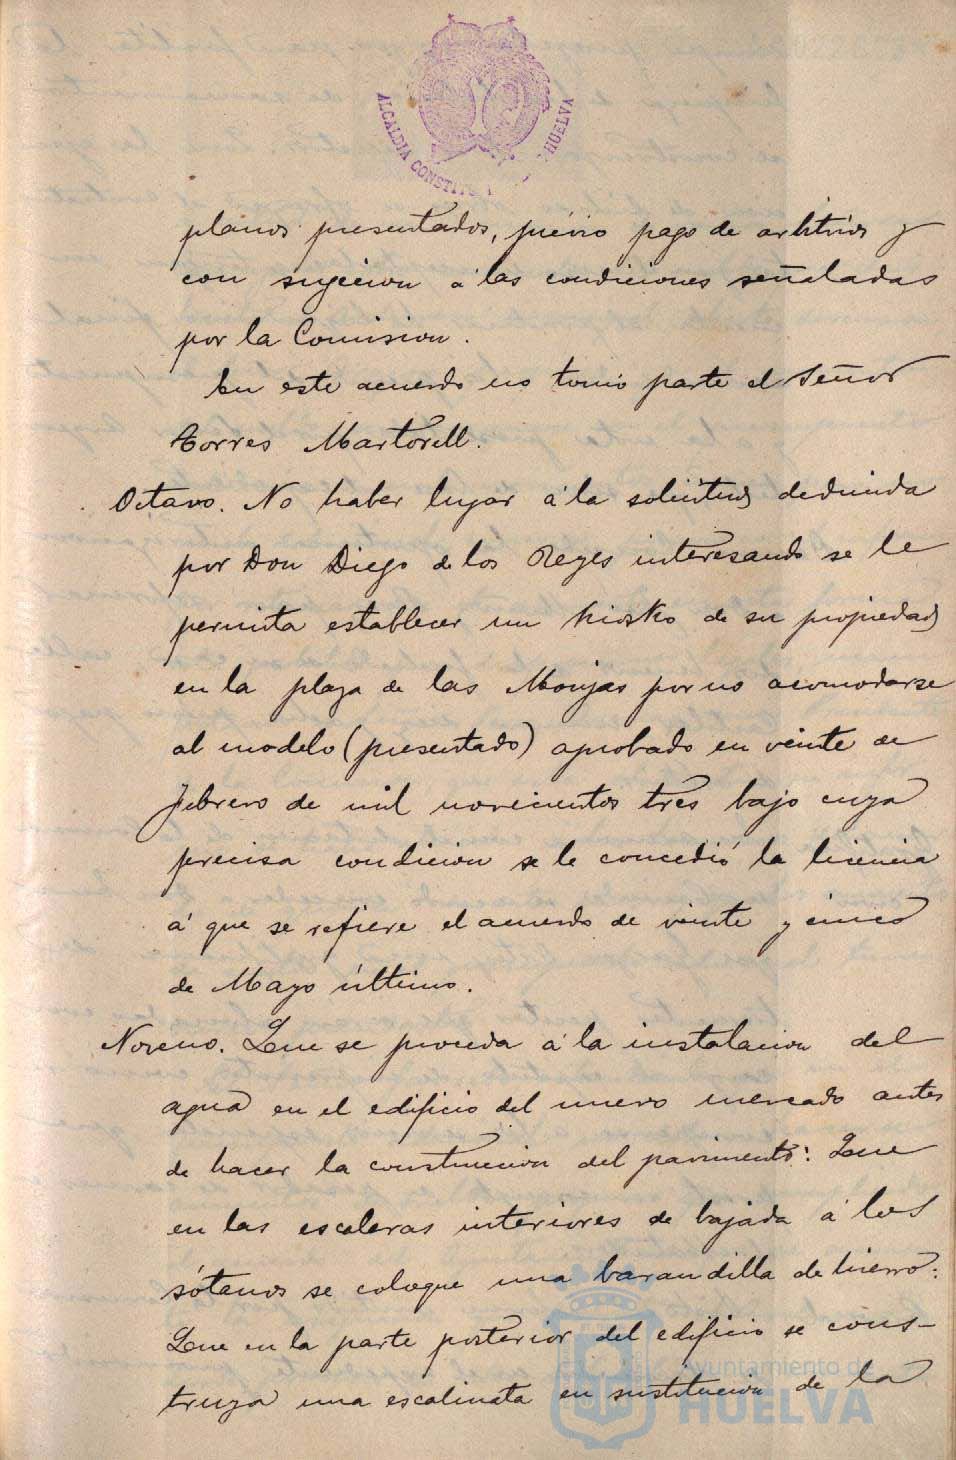 ALCALDIA CONSTIT HUELVA
planos presentados, prévio pago de arbitrios y
con sugecion á las condiciones señaladas
por la Comision.
En este acuerdo no tomó parte el Señor
Torres Martorell.
Octavo. No haber lugar á la solicitud deducida
por Don Diego de los Reyes interesando se le
permita establecer un kiosko de su propiedad
en la plaza de las Monjas por no acomodarse
al modelo (presentado) aprobado en veinte de
febrero de mil novecientos tres bajo cuya
precisa condicion se le concedió la licencia
á que se refiere el acuerdo de veinte y cinco
de Mayo último.
Noveno. Que se proceda á la instalacion del
agua en el edificio del nuevo mercado antes
de hacer la construccion del pavimento: Que
en las escaleras interiores de bajada á los
sótanos se coloque una barandilla de hierro:
Que en la parte posterior del edificio se cons-
truya una escalinata en sustitucion de la
Ayuntamiento de
HUELVA